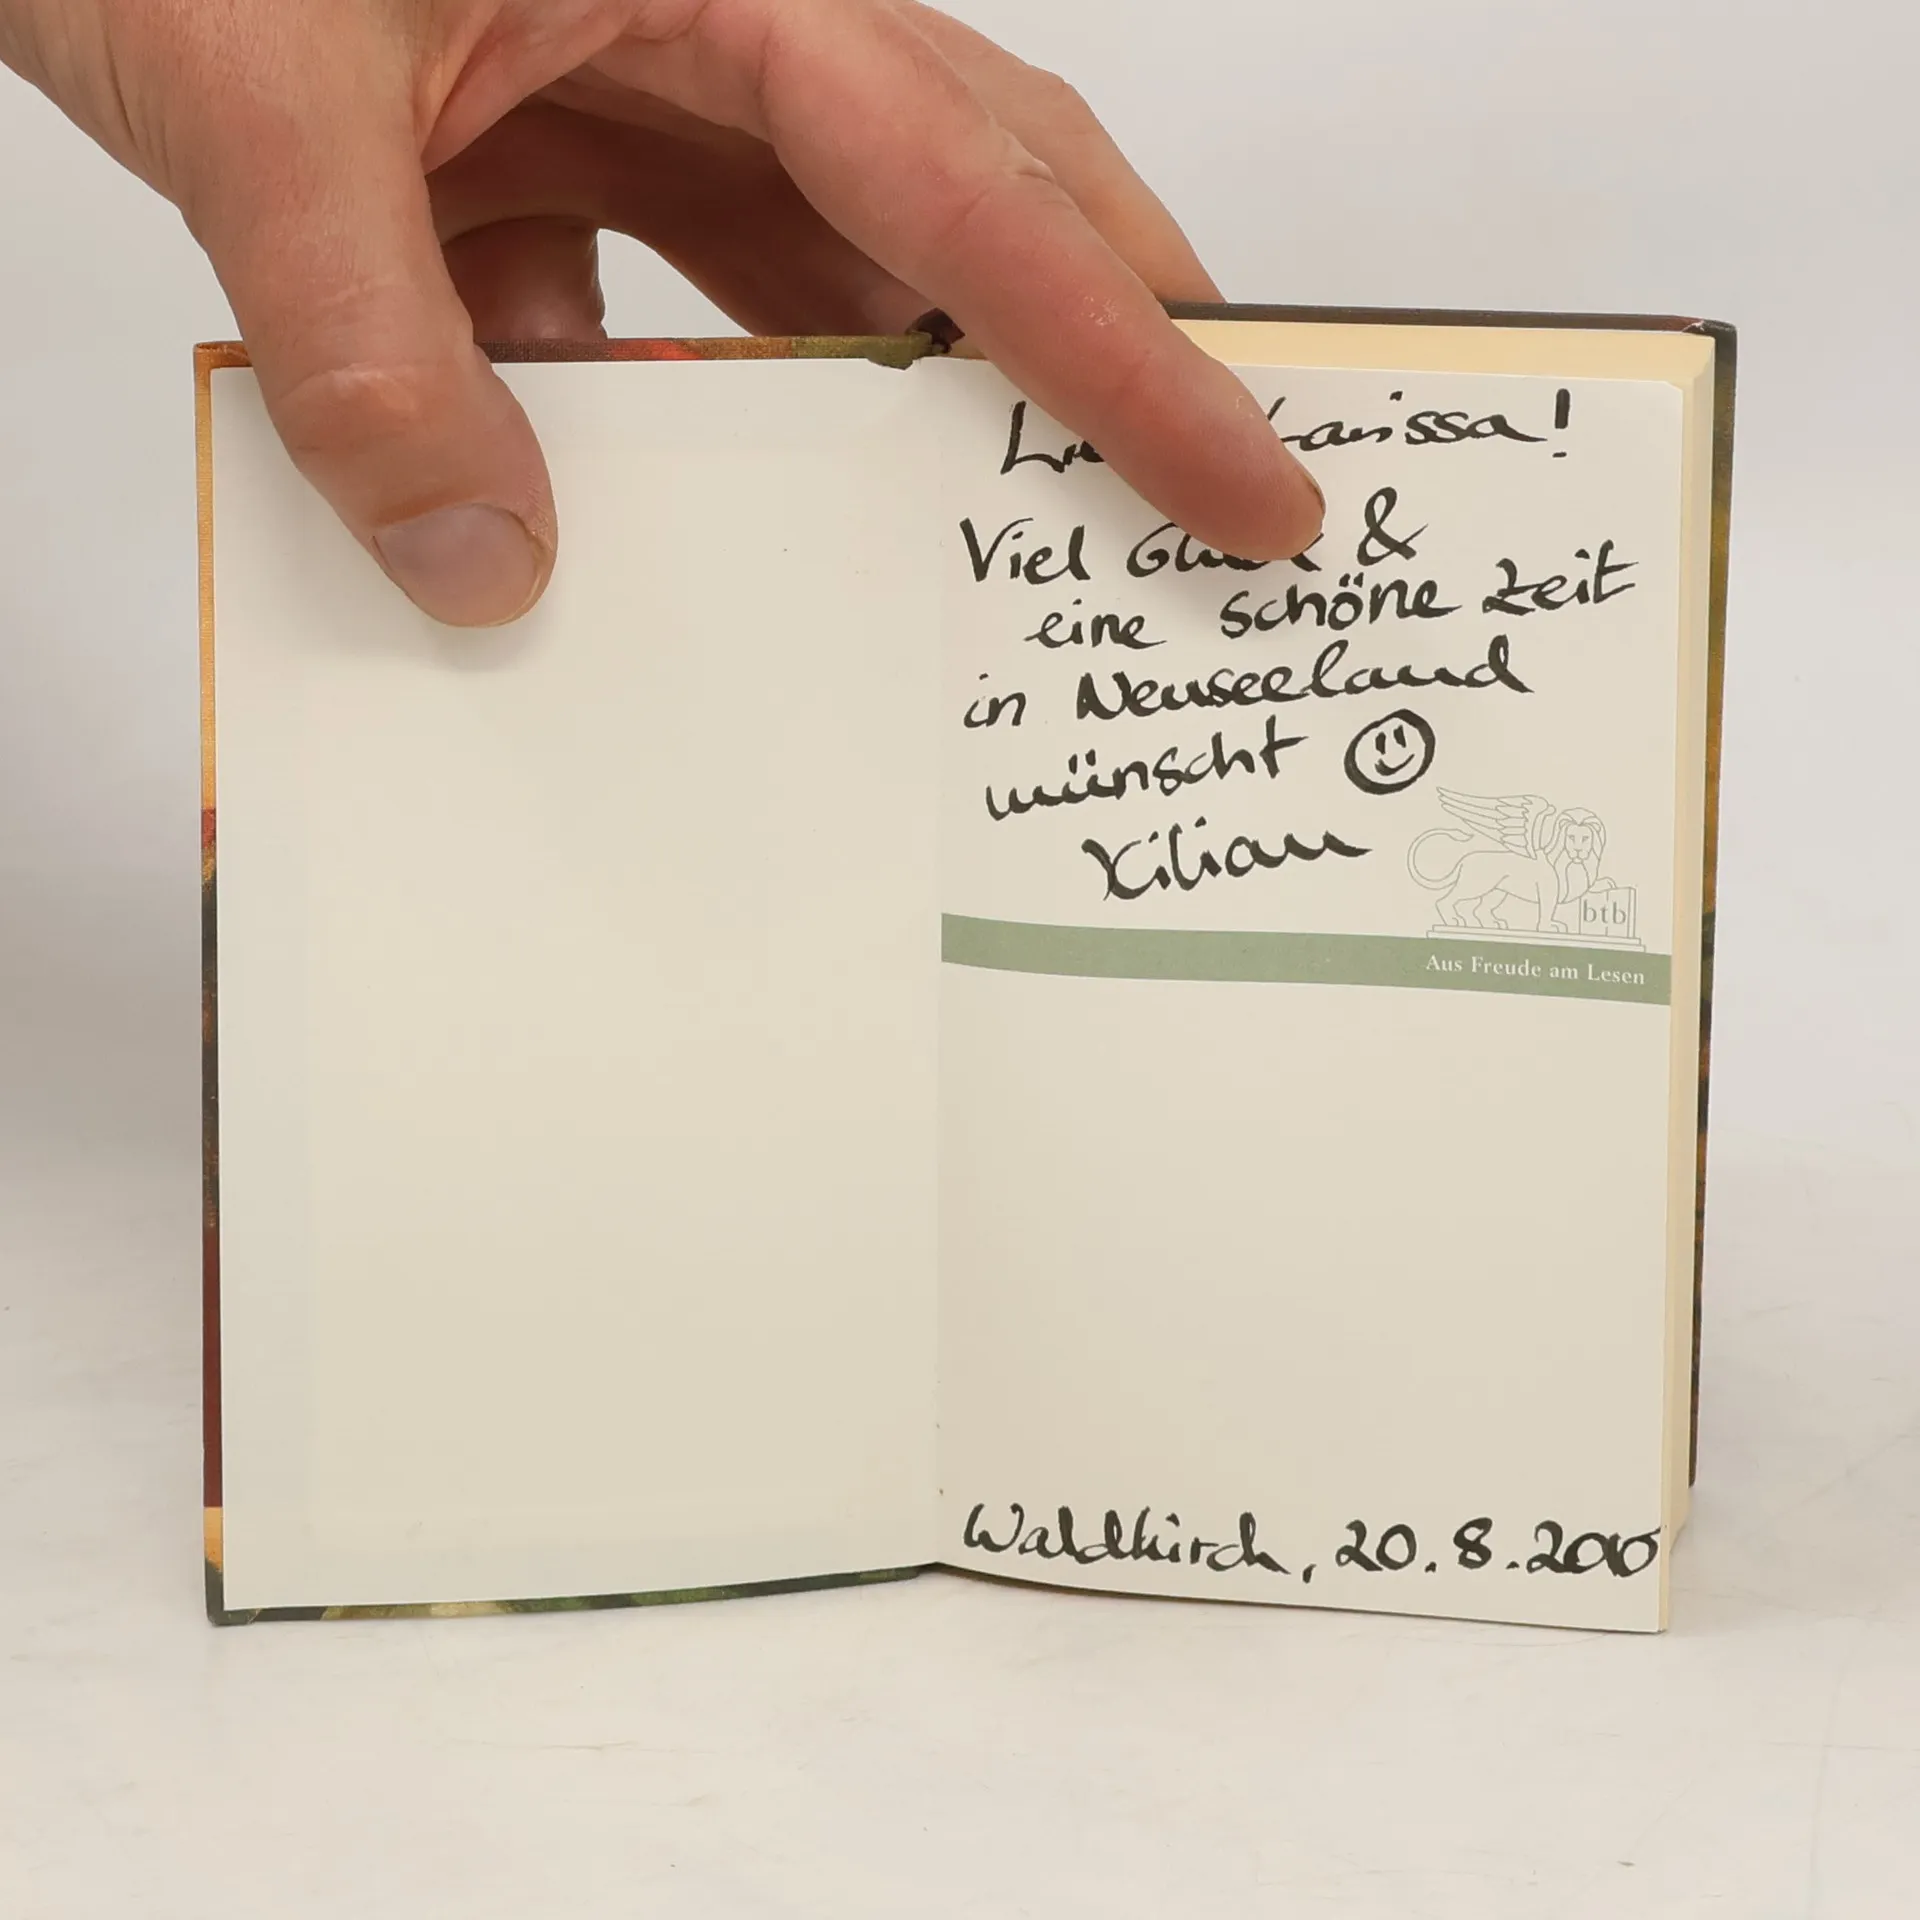 Larissa!
Viel Glück &
eine schöne Zeit
in Neuseeland
wünscht
Kilian
btb
Aus Freude am Lesen
Waldkirch, 20.8.2010